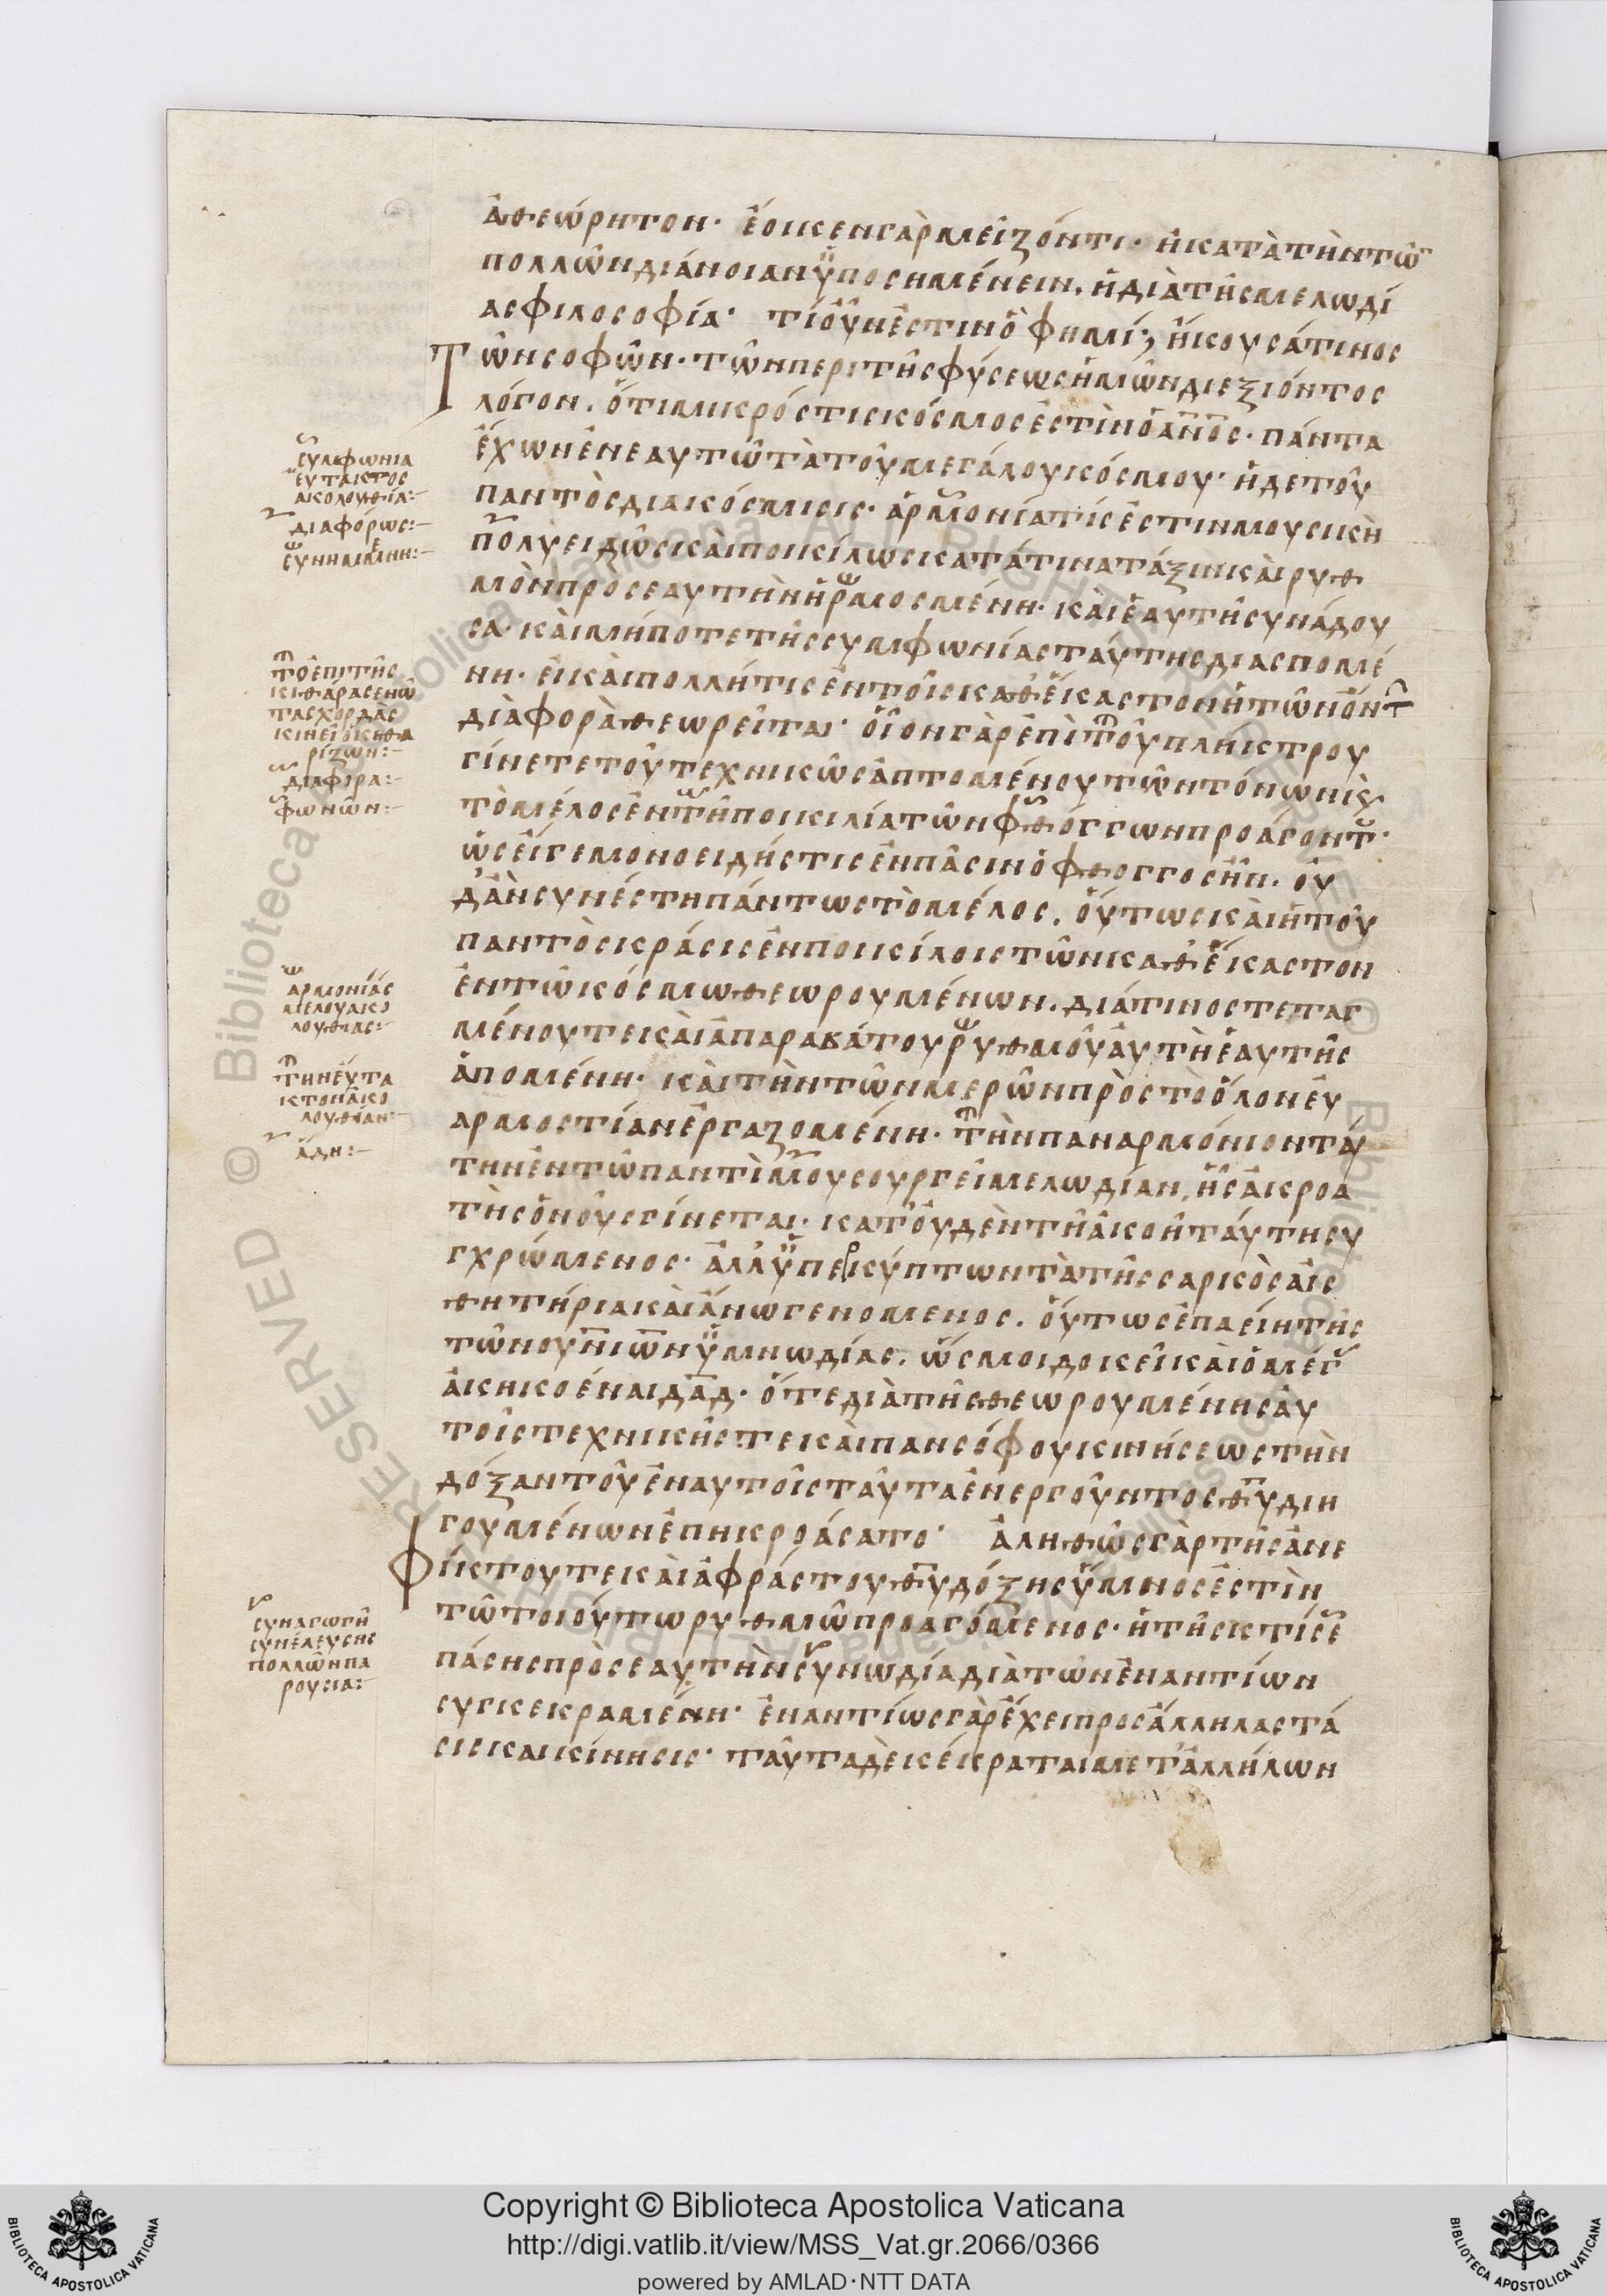 ἀθεώρητον· ἔοικεν γὰρ μεῖζόν τι· ἢ κατὰ τὴν τῶ
πολλῶν διάνοιαν ὑποσημένειν, ἡ διὰ τῆς μελωδί
ας φιλοσοφία· τί οὖν ἐστιν ὅ φημί; ἤκουσά τινος
τῶν σοφῶν· τῶν περι τῆς φύσεως ἡμῶν διεξιόντος
λόγον, ὅτι μικρός τις κόσμος ἐστὶν ὁ ἄνος· πάντα
ἔχων ἐν εαυτῶ τὰ τοῦ μεγάλου κόσμου· ἡ δε τοῦ
παντὸς διακόσμισις· ἁρμονία τίς ἐστιν μουσικὴ
πολυειδῶς καὶ ποικίλως κατά τινα τάξιν καὶ ρυθ
μὸν προς εαυτὴν ἡρμοσμένη· καὶ ἑαυτῆς συνάδου
σα· καὶ μήποτε τῆς συμφωνίας ταύτης διασπομέ
νη· εἰ καὶ πολλή τις ἐν τοῖς καθ' ἕκαστον ἡ τῶν ὄντ
διὰφορὰ θεωρεῖται· οἷον γὰρ ἐπὶ τοῦ πλήκτρου
γίνετε τοῦ τεχνικῶς ἁπτομένου τῶν τόνων κς
τὸ μέλος ἐν τῆ ποικιλία τῶν φθόγγων προάγοντ·
ὡς εἴγε μονοειδής τις ἐν πᾶσιν ὁ φθογγος ἦν, οὐ
δ' ἂν συνέστη πάντως τὸ μέλος, οὕτως καὶ ἡ τοῦ
παντὸς κράσις ἐν ποικίλοις τῶν καθ' ἕκαστον
ἐν τῶ κόσμω θεωρουμένων, διά τινος τεταγ
μένου τε καὶ ἀπαραβάτου ρυθμοῦ αὐτὴ ἑαυτῆς
ἁπομένη· καὶ τὴν τῶν μερῶν πρὸς τὸ ὅλον ἐυ
αρμοστίαν ἐργαζομένη· τὴν παναρμόνιον ταύ
την ἐν τῶ παντὶ μουσουργεῖ μελωδίαν, ἧς ἀκροα
τὴς ὁ νοῦς γίνεται· κατ' οὐδὲν τῆ ἀκοῆ ταύτη συ
γχρώμενος· ἀλλ' ὑπερκύπτων τὰ τῆς σαρκὸς αἰσ
θητήρια καὶ ἄνω γενομενος, οὕτως ἐπαείη τῆς
τῶν ουνιων ὑμνωδίας, ὥς μοι δοκεῖ καὶ ὁ μέγ
ἀκηκοέναι δαδ· ὅτε διὰ τῆς θεωρουμένης αὐ
τοῖς τεχνικῆς τε καὶ πανσόφου κινήσεως τὴν
δόξαν τοῦ ἐν αυτοῖς ταῦτα ἐνεργοῦντος θυ διη
γουμένων ἐπηκροάσατο· ἀληθῶς γὰρ τῆς ἀνε
φίκτου τε καὶ ἀφράστου θυ δόξης ὕμνος ἐστὶν
τῶ τοιούτω ρυθμῶ προαγόμενος· ἡ τῆς κτίσε
πάσης πρὸς εαυτὴν συνωδία διὰ τῶν ἐναντίων
συγκεκραμένη· ἐναντίως γὰρ ἔχει προς ἄλληλα στά
σις και κίνησις· ταῦτα δὲ κέκραται μετ' ἀλλήλων
συμφωνια
ευτακτος
ακολουθία:-
διαφόρως:-
συνημμένη:-
το ἐπι τῆς
κιθάρας εν ῶ
τας χορδὰς
κινεῖ ο κηθα
ρίζων:-
διαφορα:-
φωνῶν:-
αρμονίας
μελους ακο
λουθιας:-
την έυτα
κτον ἀκο
λουθίαν:-
άδη:-
συναγωγῆ
συνέλευσης
πολλῶν πα
ρουσια:-
Copyright © Biblioteca Apostolica Vaticana
http://digi.vatlib.it/view/MSS_Vat.gr.2066/0366
powered by AMLAD·NTT DATA
BIBLIOTECA APOSTOLICA VATICANA
BIBLIOTECA APOSTOLICA VATICANA